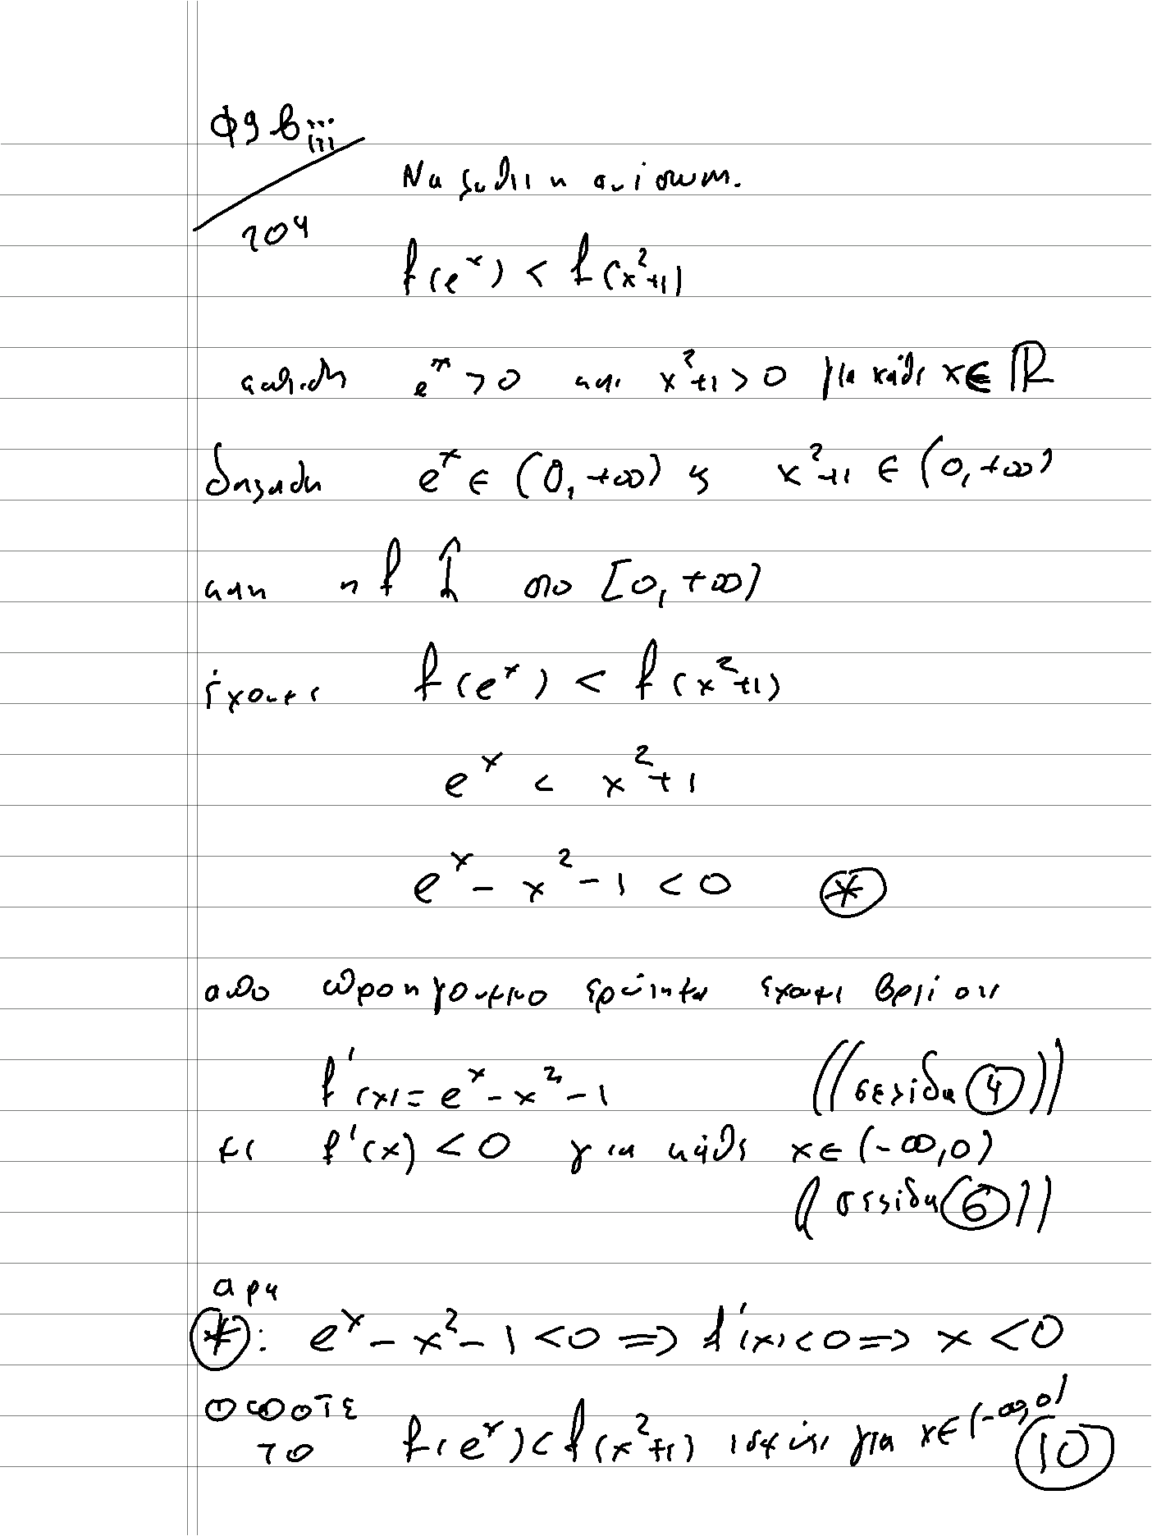 Φ9 βiii
204
Να λυθεί η ανίσωση.
f(eˣ) < f(x²+1)
επειδή eˣ > 0 και x²+1 > 0 για κάθε x ∈ ℝ
δηλαδή eˣ ∈ (0, +∞) ς x²+1 ∈ (0, +∞)
και η f ↑ στο [0, +∞)
έχουμε f(eˣ) < f(x²+1)
eˣ < x²+1
eˣ - x² - 1 < 0 (*)
από προηγούμενο ερώτημα έχουμε βρει ότι
f'(x) = eˣ - x² - 1 ((σελίδα 4))
με f'(x) < 0 για κάθε x ∈ (-∞, 0)
((σελίδα 6))
άρα
(*): eˣ - x² - 1 < 0 ⇒ f'(x) < 0 ⇒ x < 0
οπότε
το f(eˣ) < f(x²+1) ισχύει για x ∈ (-∞, 0)
10